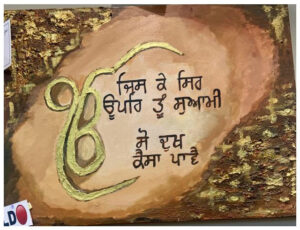 ੴ
ਜਿਸ ਕੇ ਸਿਰ
ਊਪਰਿ ਤੂੰ ਸੁਆਮੀ
ਸੋ ਦੁਖ
ਕੈਸਾ ਪਾਵੈ
LD